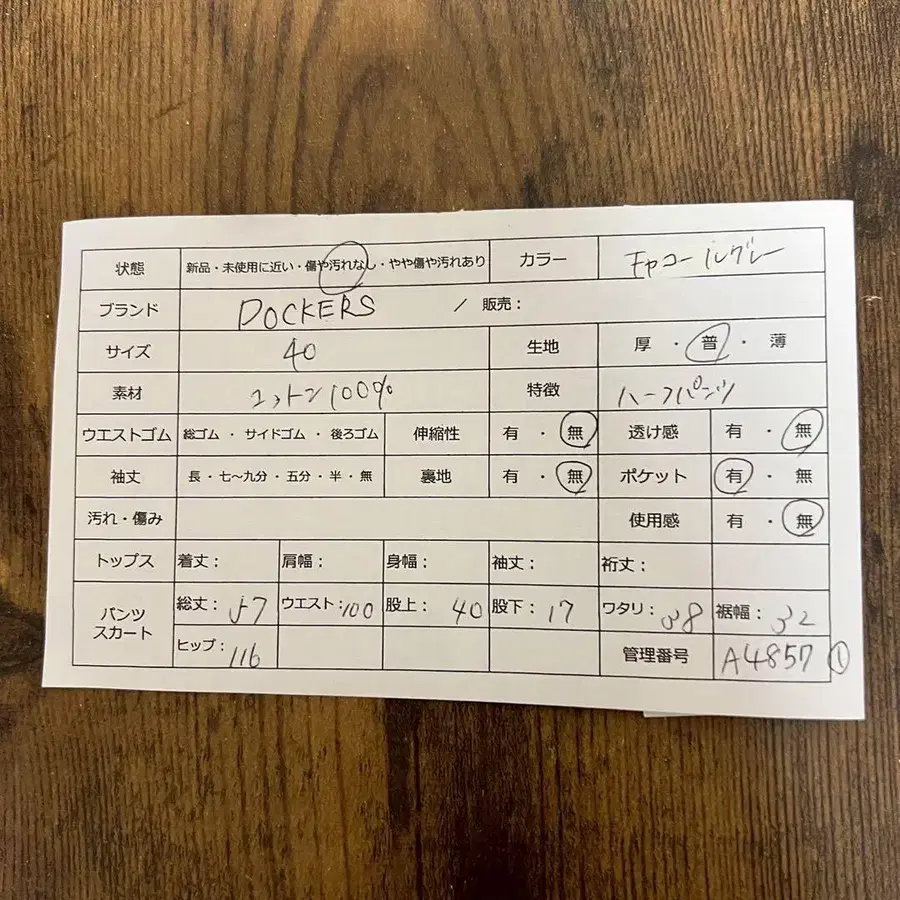 状態 新品・未使用に近い・傷や汚れなし・やや傷や汚れあり カラー チャコールグレー
ブランド DOCKERS / 販売：
サイズ 40 生地 厚・普・薄
素材 コットン100% 特徴 ハーフパンツ
ウエストゴム 総ゴム・サイドゴム・後ろゴム 伸縮性 有・無 透け感 有・無
袖丈 長・七～九分・五分・半・無 裏地 有・無 ポケット 有・無
汚れ・傷み 使用感 有・無
トップス 着丈： 肩幅： 身幅： 袖丈： 裄丈：
パンツ スカート 総丈：57 ウエスト：100 股上：40 股下：17 ワタリ：38 裾幅：32
ヒップ：116 管理番号 A4857 ①